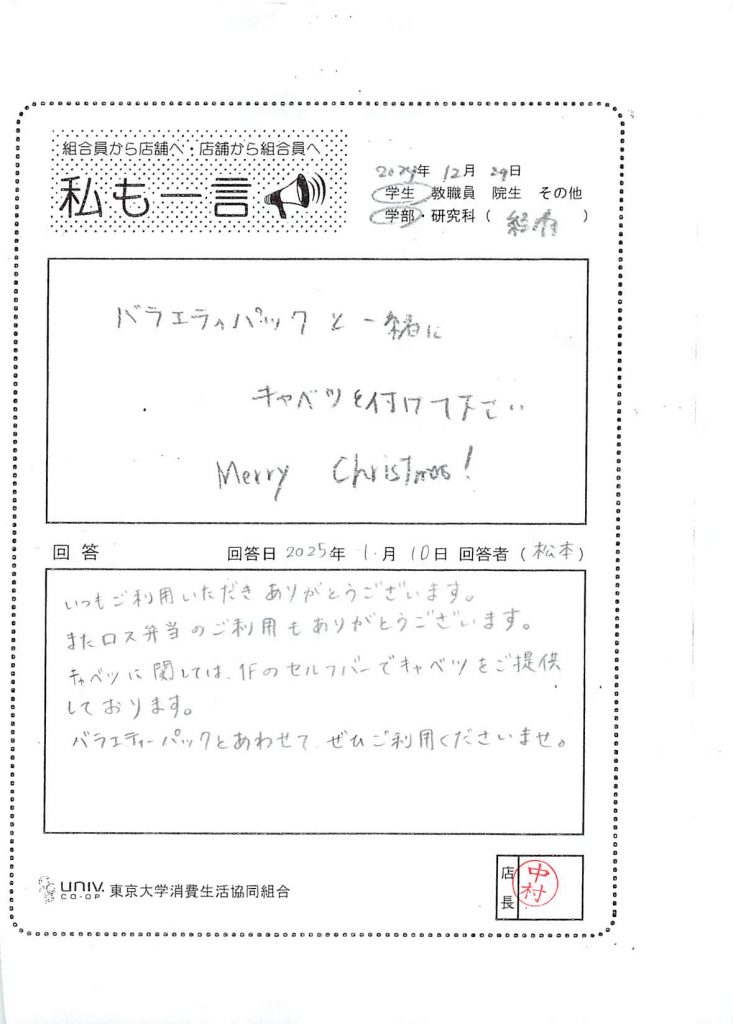 組合員から店舗へ・店舗から組合員へ
私も一言
2024年 12月 29日
学生 教職員 院生 その他
学部・研究科（ 経済 ）
バラエティパックと一緒に
キャベツを付けて下さい
Merry Christmas!
回答 回答日 2025年 1月 10日 回答者（松本）
いつもご利用いただきありがとうございます。
またロス弁当のご利用もありがとうございます。
キャベツに関しては、1Fのセルフバーでキャベツをご提供
しております。
バラエティーパックとあわせて、ぜひご利用くださいませ。
UNIV. CO-OP 東京大学消費生活協同組合
店長 中村